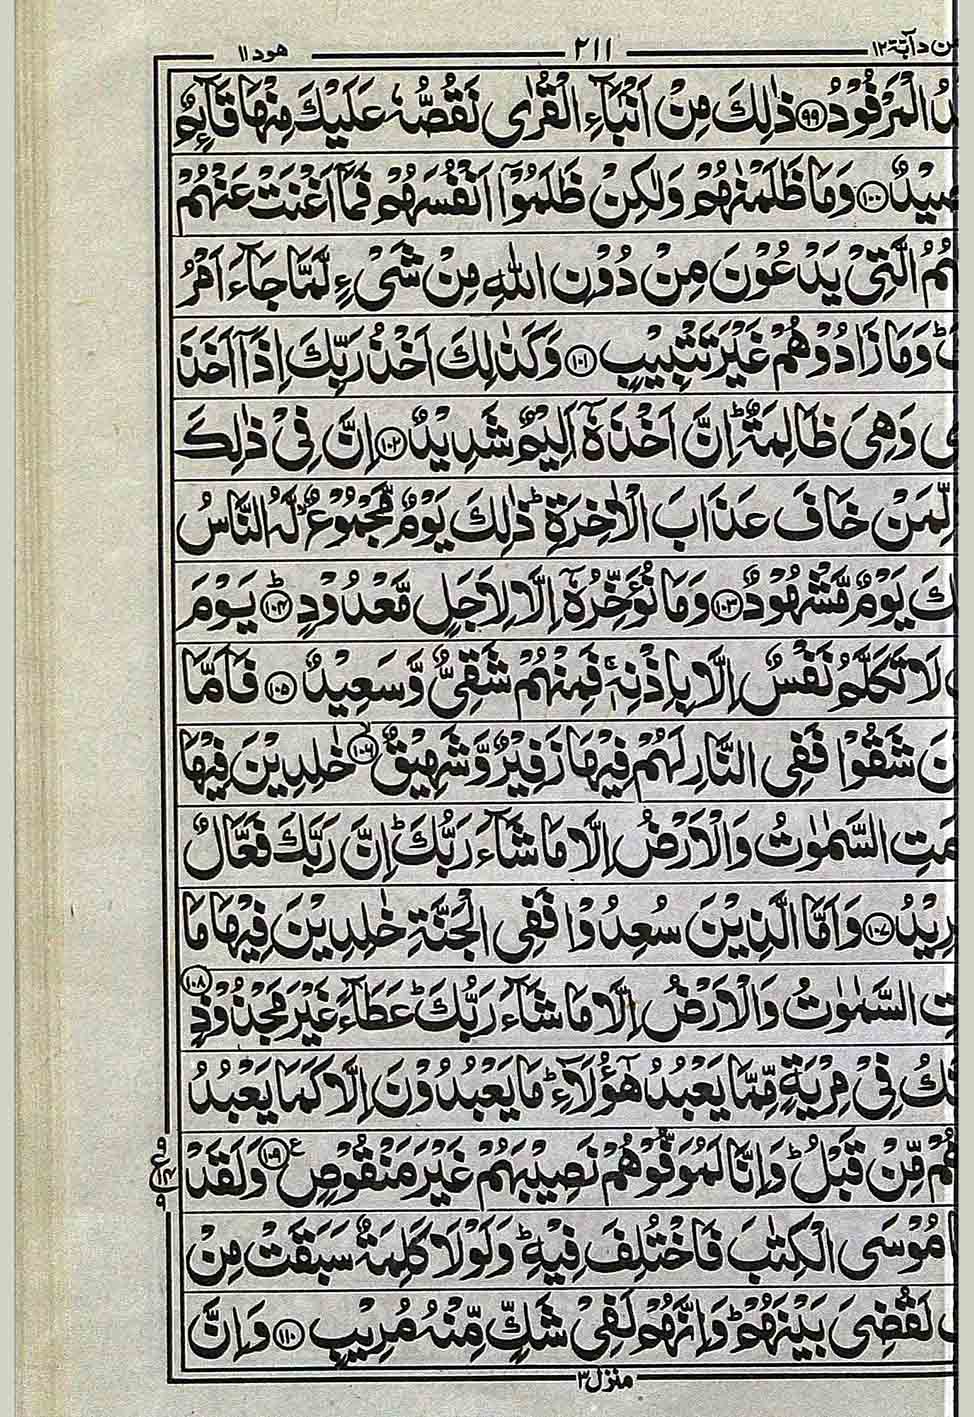 هود ۱۱ ۲۱۱ من دآبة ۱۲
الْمَرْفُوْدُ ۹۹ ذٰلِكَ مِنْ اَنْۢبَآءِ الْقُرٰى نَقُصُّهٗ عَلَيْكَ مِنْهَا قَآئِمٌ
صِيْدٌ ۱۰۰ وَمَا ظَلَمْنٰهُمْ وَلٰكِنْ ظَلَمُوْۤا اَنْفُسَهُمْ فَمَاۤ اَغْنَتْ عَنْهُمْ
هُمُ الَّتِىْ يَدْعُوْنَ مِنْ دُوْنِ اللّٰهِ مِنْ شَىْءٍ لَّمَّا جَآءَ اَمْرُ
وَمَا زَادُوْهُمْ غَيْرَ تَتْبِيْبٍ ۱۰۱ وَكَذٰلِكَ اَخْذُ رَبِّكَ اِذَاۤ اَخَذَ
وَهِىَ ظَالِمَةٌ ؕ اِنَّ اَخْذَهٗۤ اَلِيْمٌ شَدِيْدٌ ۱۰۲ اِنَّ فِىْ ذٰلِكَ
لِّمَنْ خَافَ عَذَابَ الْاٰخِرَةِ ؕ ذٰلِكَ يَوْمٌ مَّجْمُوْعٌ ۙ لَّهُ النَّاسُ
كَ يَوْمٌ مَّشْهُوْدٌ ۱۰۳ وَمَا نُؤَخِّرُهٗۤ اِلَّا لِاَجَلٍ مَّعْدُوْدٍ ؕ ۱۰۴ يَوْمَ
لَا تَكَلَّمُ نَفْسٌ اِلَّا بِاِذْنِهٖ ۚ فَمِنْهُمْ شَقِىٌّ وَّسَعِيْدٌ ۱۰۵ فَاَمَّا
نَ شَقُوْا فَفِى النَّارِ لَهُمْ فِيْهَا زَفِيْرٌ وَّشَهِيْقٌ ۙ ۱۰۶ خٰلِدِيْنَ فِيْهَا
مَتِ السَّمٰوٰتُ وَالْاَرْضُ اِلَّا مَا شَآءَ رَبُّكَ ؕ اِنَّ رَبَّكَ فَعَّالٌ
رِيْدُ ۱۰۷ وَاَمَّا الَّذِيْنَ سُعِدُوْا فَفِى الْجَنَّةِ خٰلِدِيْنَ فِيْهَا مَا
تِ السَّمٰوٰتُ وَالْاَرْضُ اِلَّا مَا شَآءَ رَبُّكَ ؕ عَطَآءً غَيْرَ مَجْذُوْذٍ ۱۰۸
تَكُ فِىْ مِرْيَةٍ مِّمَّا يَعْبُدُ هٰۤؤُلَآءِ ؕ مَا يَعْبُدُوْنَ اِلَّا كَمَا يَعْبُدُ
هُمْ مِّنْ قَبْلُ ؕ وَاِنَّا لَمُوَفُّوْهُمْ نَصِيْبَهُمْ غَيْرَ مَنْقُوْصٍ ۱۰۹ ع وَلَقَدْ
مُوْسَى الْكِتٰبَ فَاخْتُلِفَ فِيْهِ ؕ وَلَوْلَا كَلِمَةٌ سَبَقَتْ مِنْ
لَقُضِىَ بَيْنَهُمْ ؕ وَاِنَّهُمْ لَفِىْ شَكٍّ مِّنْهُ مُرِيْبٍ ۱۱۰ وَاِنَّ
منزل ۳